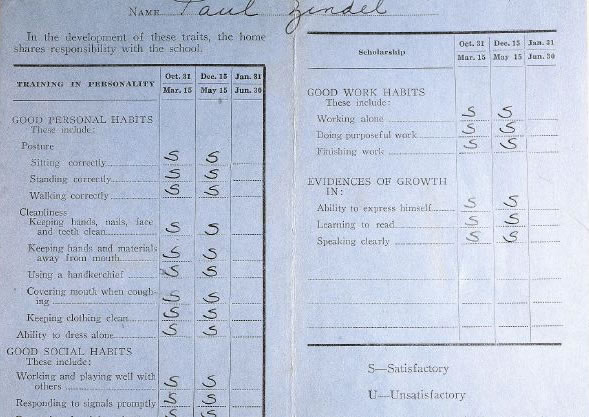 NAME Paul Zindel
In the development of these traits, the home
shares responsibility with the school.
TRAINING IN PERSONALITY Oct. 31 Dec. 15 Jan. 31
Mar. 15 May 15 Jun. 30
GOOD PERSONAL HABITS
These include:
Posture
Sitting correctly S S
Standing correctly S S
Walking correctly S S
Cleanliness
Keeping hands, nails, face
and teeth clean S S
Keeping hands and materials
away from mouth S S
Using a handkerchief S S
Covering mouth when cough-
ing S S
Keeping clothing clean S S
Ability to dress alone S S
GOOD SOCIAL HABITS
These include:
Working and playing well with
others S S
Responding to signals promptly S S
Scholarship Oct. 31 Dec. 15 Jan. 31
Mar. 15 May 15 Jun. 30
GOOD WORK HABITS
These include:
Working alone S S
Doing purposeful work S S
Finishing work S S
EVIDENCES OF GROWTH
IN:
Ability to express himself S S
Learning to read S S
Speaking clearly S S
S—Satisfactory
U—Unsatisfactory